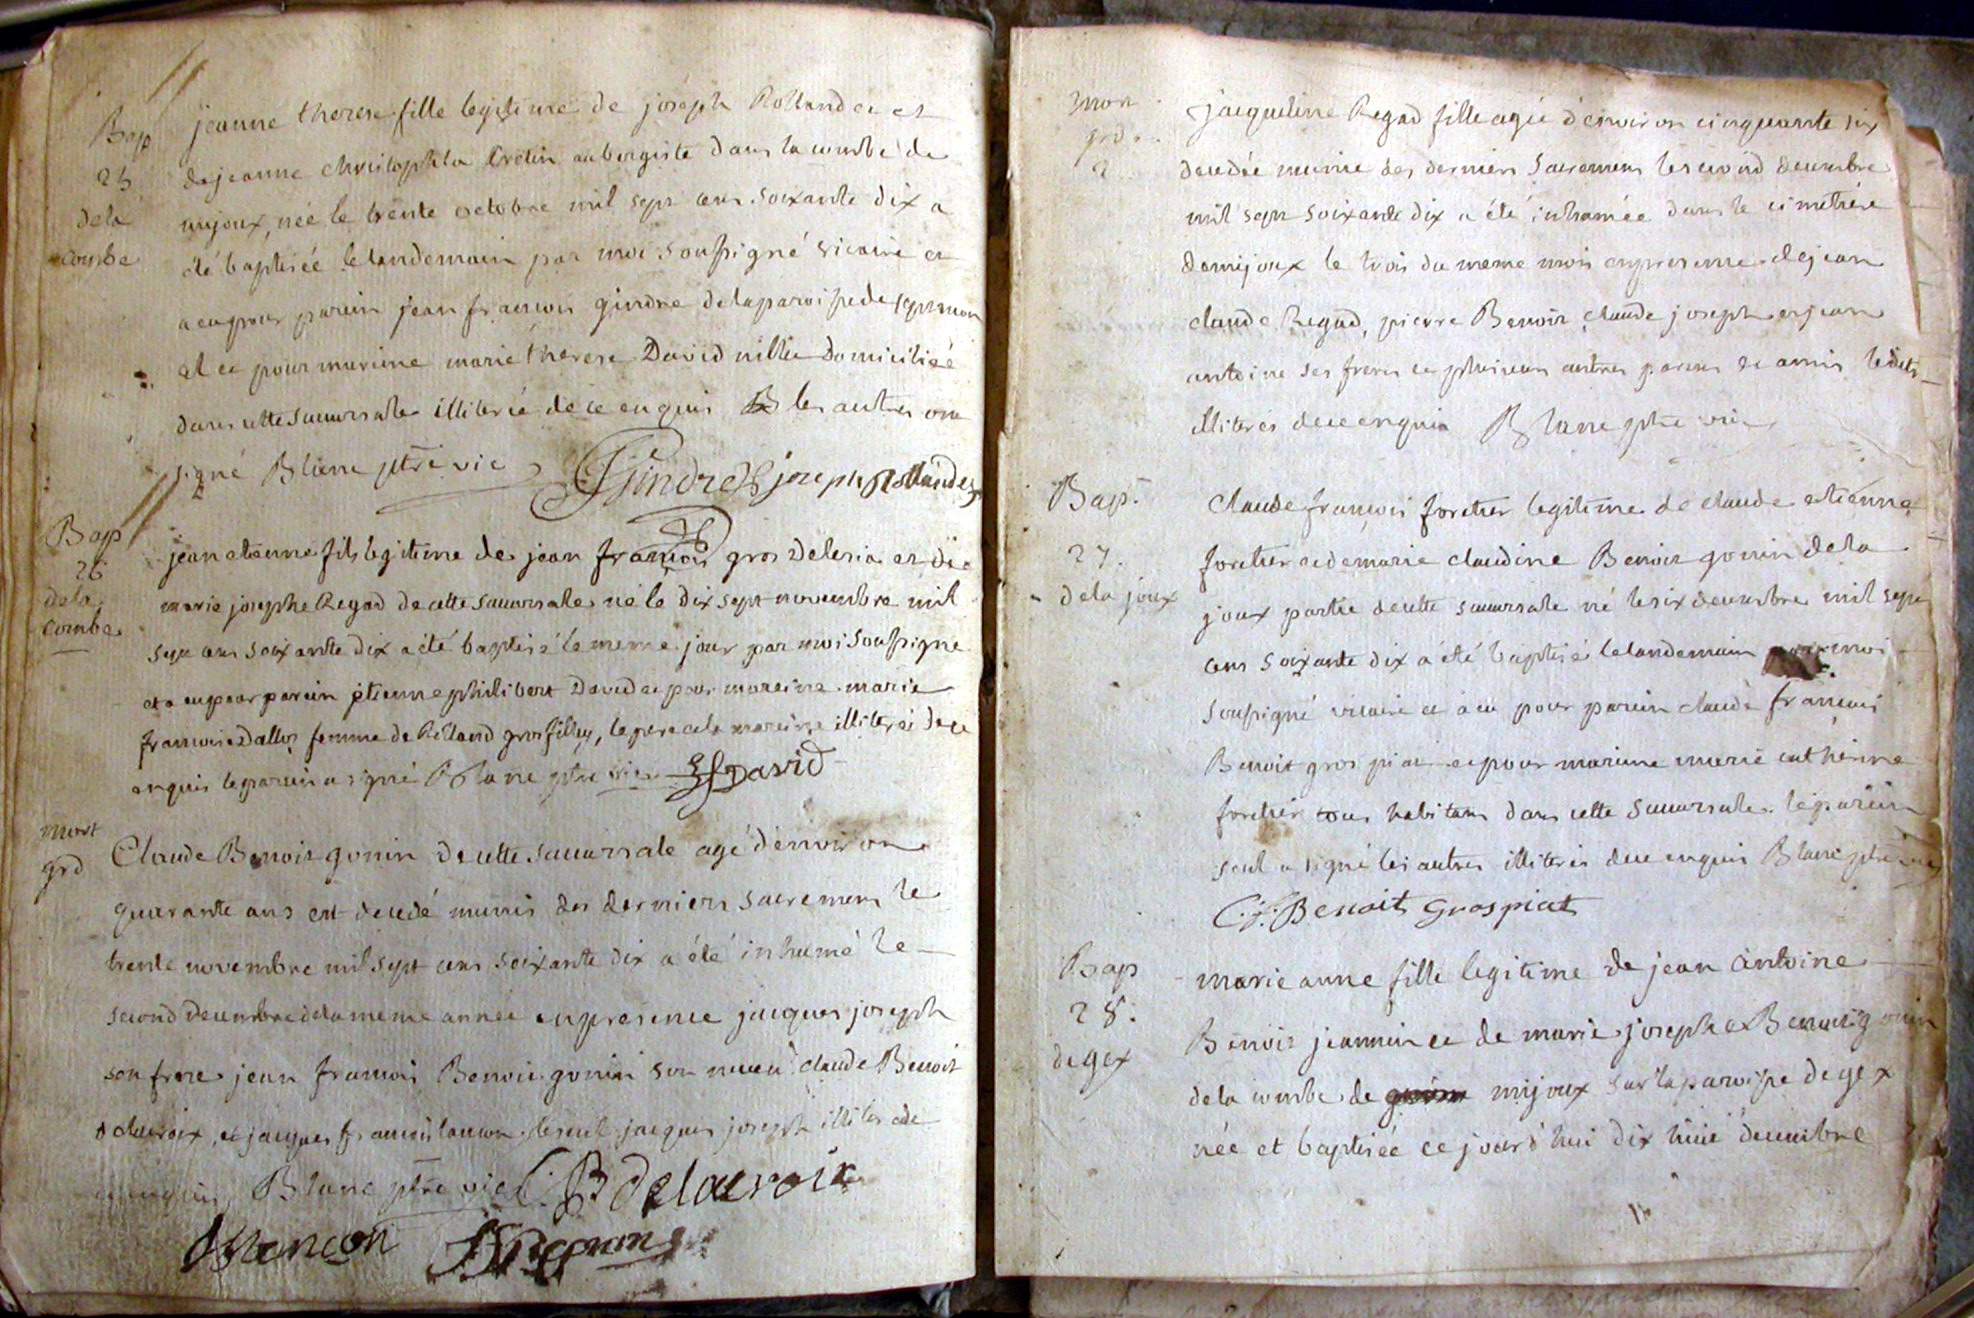 Bap
25
dela
combe
jeanne therese fille legitime de joseph Rollandez et
dejeanne christophla Crotin aubergiste dans la combe de
mijoux, née le trente octobre mil sept cens soixante dix a
été baptisée le landemain par moi soussigné vicaire et
a eu pour parein jean francois gindre delaparoisse de septmon
cel et pour mareine marie therese David nillu domiciliée
dans cette succursale illiterée de ce enquis les autres ont
signé Blanc ptre vic Gindre joseph Rollandez
Bap
26
dela
combe
jean etienne fils legitime de jean francois gros Delesia et de
marie josephe Regad de cette succursale né le dix sept novembre mil
sept cens soixante dix a été baptisé le meme jour par moi soussigné
et a eu pour parein etienne philibert David et pour mareine marie
francoise Dalloz femme de Rolland grosfilley, le pere et la mareine illiterés de ce
enquis le parein a signé Blanc ptre vic David
mort
grd
Claude Benoit gonin de cette succursale agé d'environ
quarante ans est decedé munis des derniers sacremens le
trente novembre mil sept cens soixante dix a été inhumé le
second decembre dela meme année en presence jacques joseph
son frere jean francois Benoit gonin son neveu claude Benoit
delacroix, et jacques francois lancon le seul jacques joseph illiteré de
ce enquis Blanc ptre vic C: B Delacroix
Lancon
mort
grd
2
jacqueline Regad fille agée d'environ cinquante six
decedée munie des derniers sacremens le second decembre
mil sept soixante dix a été inhumée dans le cimetiere
demijoux le trois du meme mois en presence de jean
claude Regad, pierre Benoit, claude joseph et jean
antoine ses freres et plusieurs autres parens et amis lesdits
illiterés de ce enquis Blanc ptre vic
Bap.
27.
dela joux
Claude francois foretier legitime de claude etienne
foretier et de marie claudine Benoit gonin dela
joux partie de cette succursale né le six decembre mil sept
cens soixante dix a été baptisé le landemain par moi
soussigné vicaire et a eu pour parein claude francois
Benoit gros piat et pour mareine marie catherine
foretier tous habitans dans cette succursale le parein
seul a signé les autres illiterés de ce enquis Blanc ptre vic
C. f. Benoit Grospiat
Bap
28.
de gex
marie anne fille legitime de jean antoine
Benoit jeannin et de marie josephe Benoit gonin
dela combe de mijoux sur la paroisse de gex
née et baptisée ce jourd'hui dix huit decembre